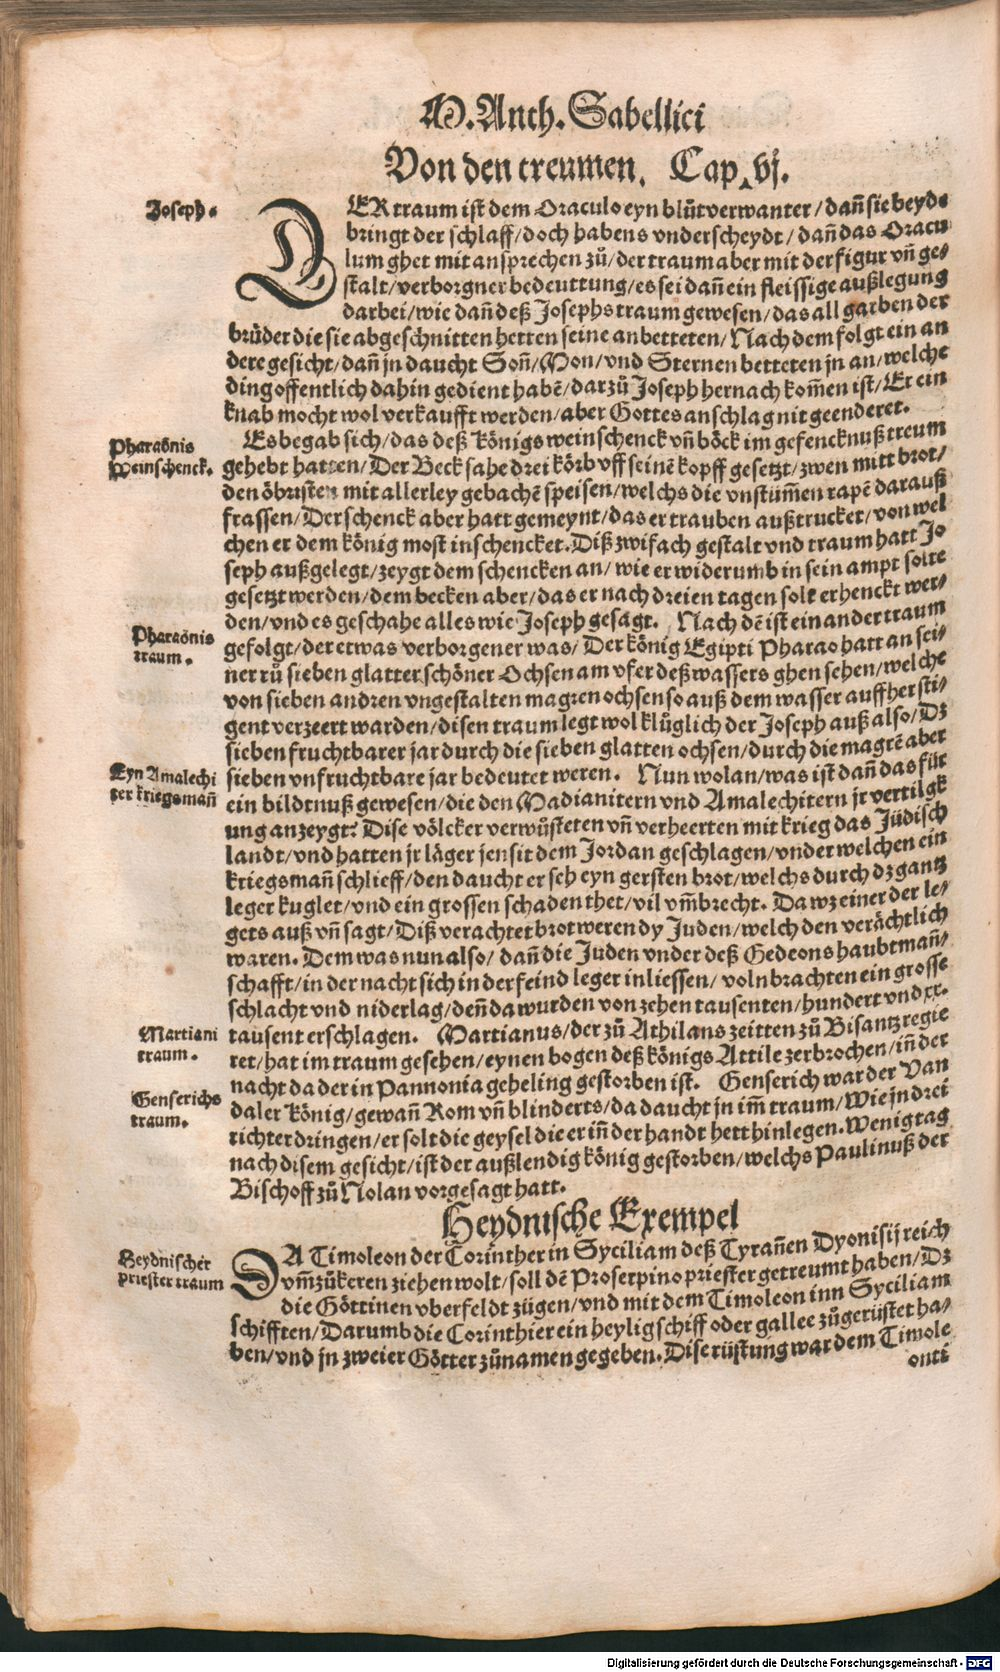 M. Anth. Sabellici
Von den treumen. Cap vj.
Joseph.
DER traum ist dem Oraculo eyn blůtverwanter / dañ sie beyde
bringt der schlaff / doch habens vnderscheydt / dañ das Oracu
lum ghet mit ansprechen zů / der traum aber mit der figur vñ ge-
stalt / verborgner bedeuttung / es sei dañ ein fleissige außlegung
darbei / wie dañ deß Josephs traum gewesen / das all garben der
brüder die sie abgeschnitten hetten seine anbetteten / Nach dem folgt ein an
dere gesicht / dañ jn daucht Soñ / Mon / vnd Sternen betteten jn an / welche
ding offentlich dahin gedient habē / darzů Joseph hernach kom̃en ist / Er ein
knab mocht wol verkaufft werden / aber Gottes anschlag nit geenderet.
Pharaönis
Weinschenck.
Es begab sich / das deß Königs weinschenck vñ böck im gefencknuß treum
gehebt hatten / Der Beck sahe drei körb vff seinē kopff gesetzt / zwen mitt brot /
den öbristen mit allerley gebachē speisen / welchs die vnstüm̃en rapē darauß
frassen / Der schenck aber hatt gemeynt / das er trauben außtrucket / von wel
chen er dem könig most inschencket. Diß zwifach gestalt vnd traum hatt Jo
seph außgelegt / zeygt dem schencken an / wie er widerumb in sein ampt solte
gesetzt werden / dem becken aber / das er nach dreien tagen solt erhenckt wer-
den / vnd es geschahe alles wie Joseph gesagt. Nach dē ist ein ander traum
Pharaönis
traum.
gefolgt / der etwas verborgener was / Der könig Egipti Pharao hatt an sei-
ner rů sieben glatter schöner Ochsen am vfer deß wassers ghen sehen / welche
von sieben andren vngestalten magren ochsen so auß dem wasser auffher sti-
gent verzeert warden / disen traum legt wol klůglich der Joseph auß also / Dz
sieben fruchtbarer jar durch die sieben glatten ochsen / durch die magrē aber
Eyn Amalechi
ter kriegsmañ
sieben vnfruchtbare jar bedeutet weren. Nun wolan / was ist dañ das für
ein bildtnuß gewesen / die den Madianitern vnd Amalechitern jr vertilgk
ung anzeygt? Dise völcker verwůsteten vñ verheerten mit krieg das Jüdisch
landt / vnd hatten jr läger jensit dem Jordan geschlagen / vnder welchen ein
kriegsmañ schlieff / den daucht er seh eyn gersten brot / welchs durch dz gantz
leger kuglet / vnd ein grossen schaden thet / vil vm̃brecht. Da wz einer der le-
gets auß vñ sagt / Diß verachtet brot weren dy Juden / welch den verächtlich
waren. Dem was nun also / dañ die Juden vnder deß Gedeons haubtmañ-
schafft / in der nacht sich in der feind leger inliessen / volnbrachten ein grosse
schlacht vnd niderlag / deñ da wurden von zehen tausenten / hundert vnd xx.
Martiani
traum.
tausent erschlagen. Martianus / der zů Athilans zeitten zů Bisantz regie
ret / hat im traum gesehen / eynen bogen deß königs Attile zerbrochen / iñ der
nacht da der in Pannonia geheling gestorben ist. Genserich war der Van
Genserichs
traum.
daler König / gewañ Rom vñ blinderts / da daucht jn im̃ traum / Wie jn drei
richter dringen / er solt die geysel die er iñ der handt hett hinlegen. Wenig tag
nach disem gesicht / ist der außlendig könig gestorben / welchs Paulinuß der
Bischoff zů Nolan vorgesagt hatt.
Heydnische Exempel
Heydnischer
priester traum
DA Timoleon der Corinther in Syciliam deß Tyrañen Dyonisij reich
vm̃zůkeren ziehen wolt / soll dē Proserpino priester getreumt haben / Dz
die Göttinen vberfeldt zügen / vnd mit dem Timoleon inn Syciliam
schifften / Darumb die Corinthier ein heylig schiff oder gallee zůgerüstet ha-
ben / vnd jn zweier Götter zůnamen gegeben. Dise rüstung war dem Timole
onti
Digitalisierung gefördert durch die Deutsche Forschungsgemeinschaft - DFG